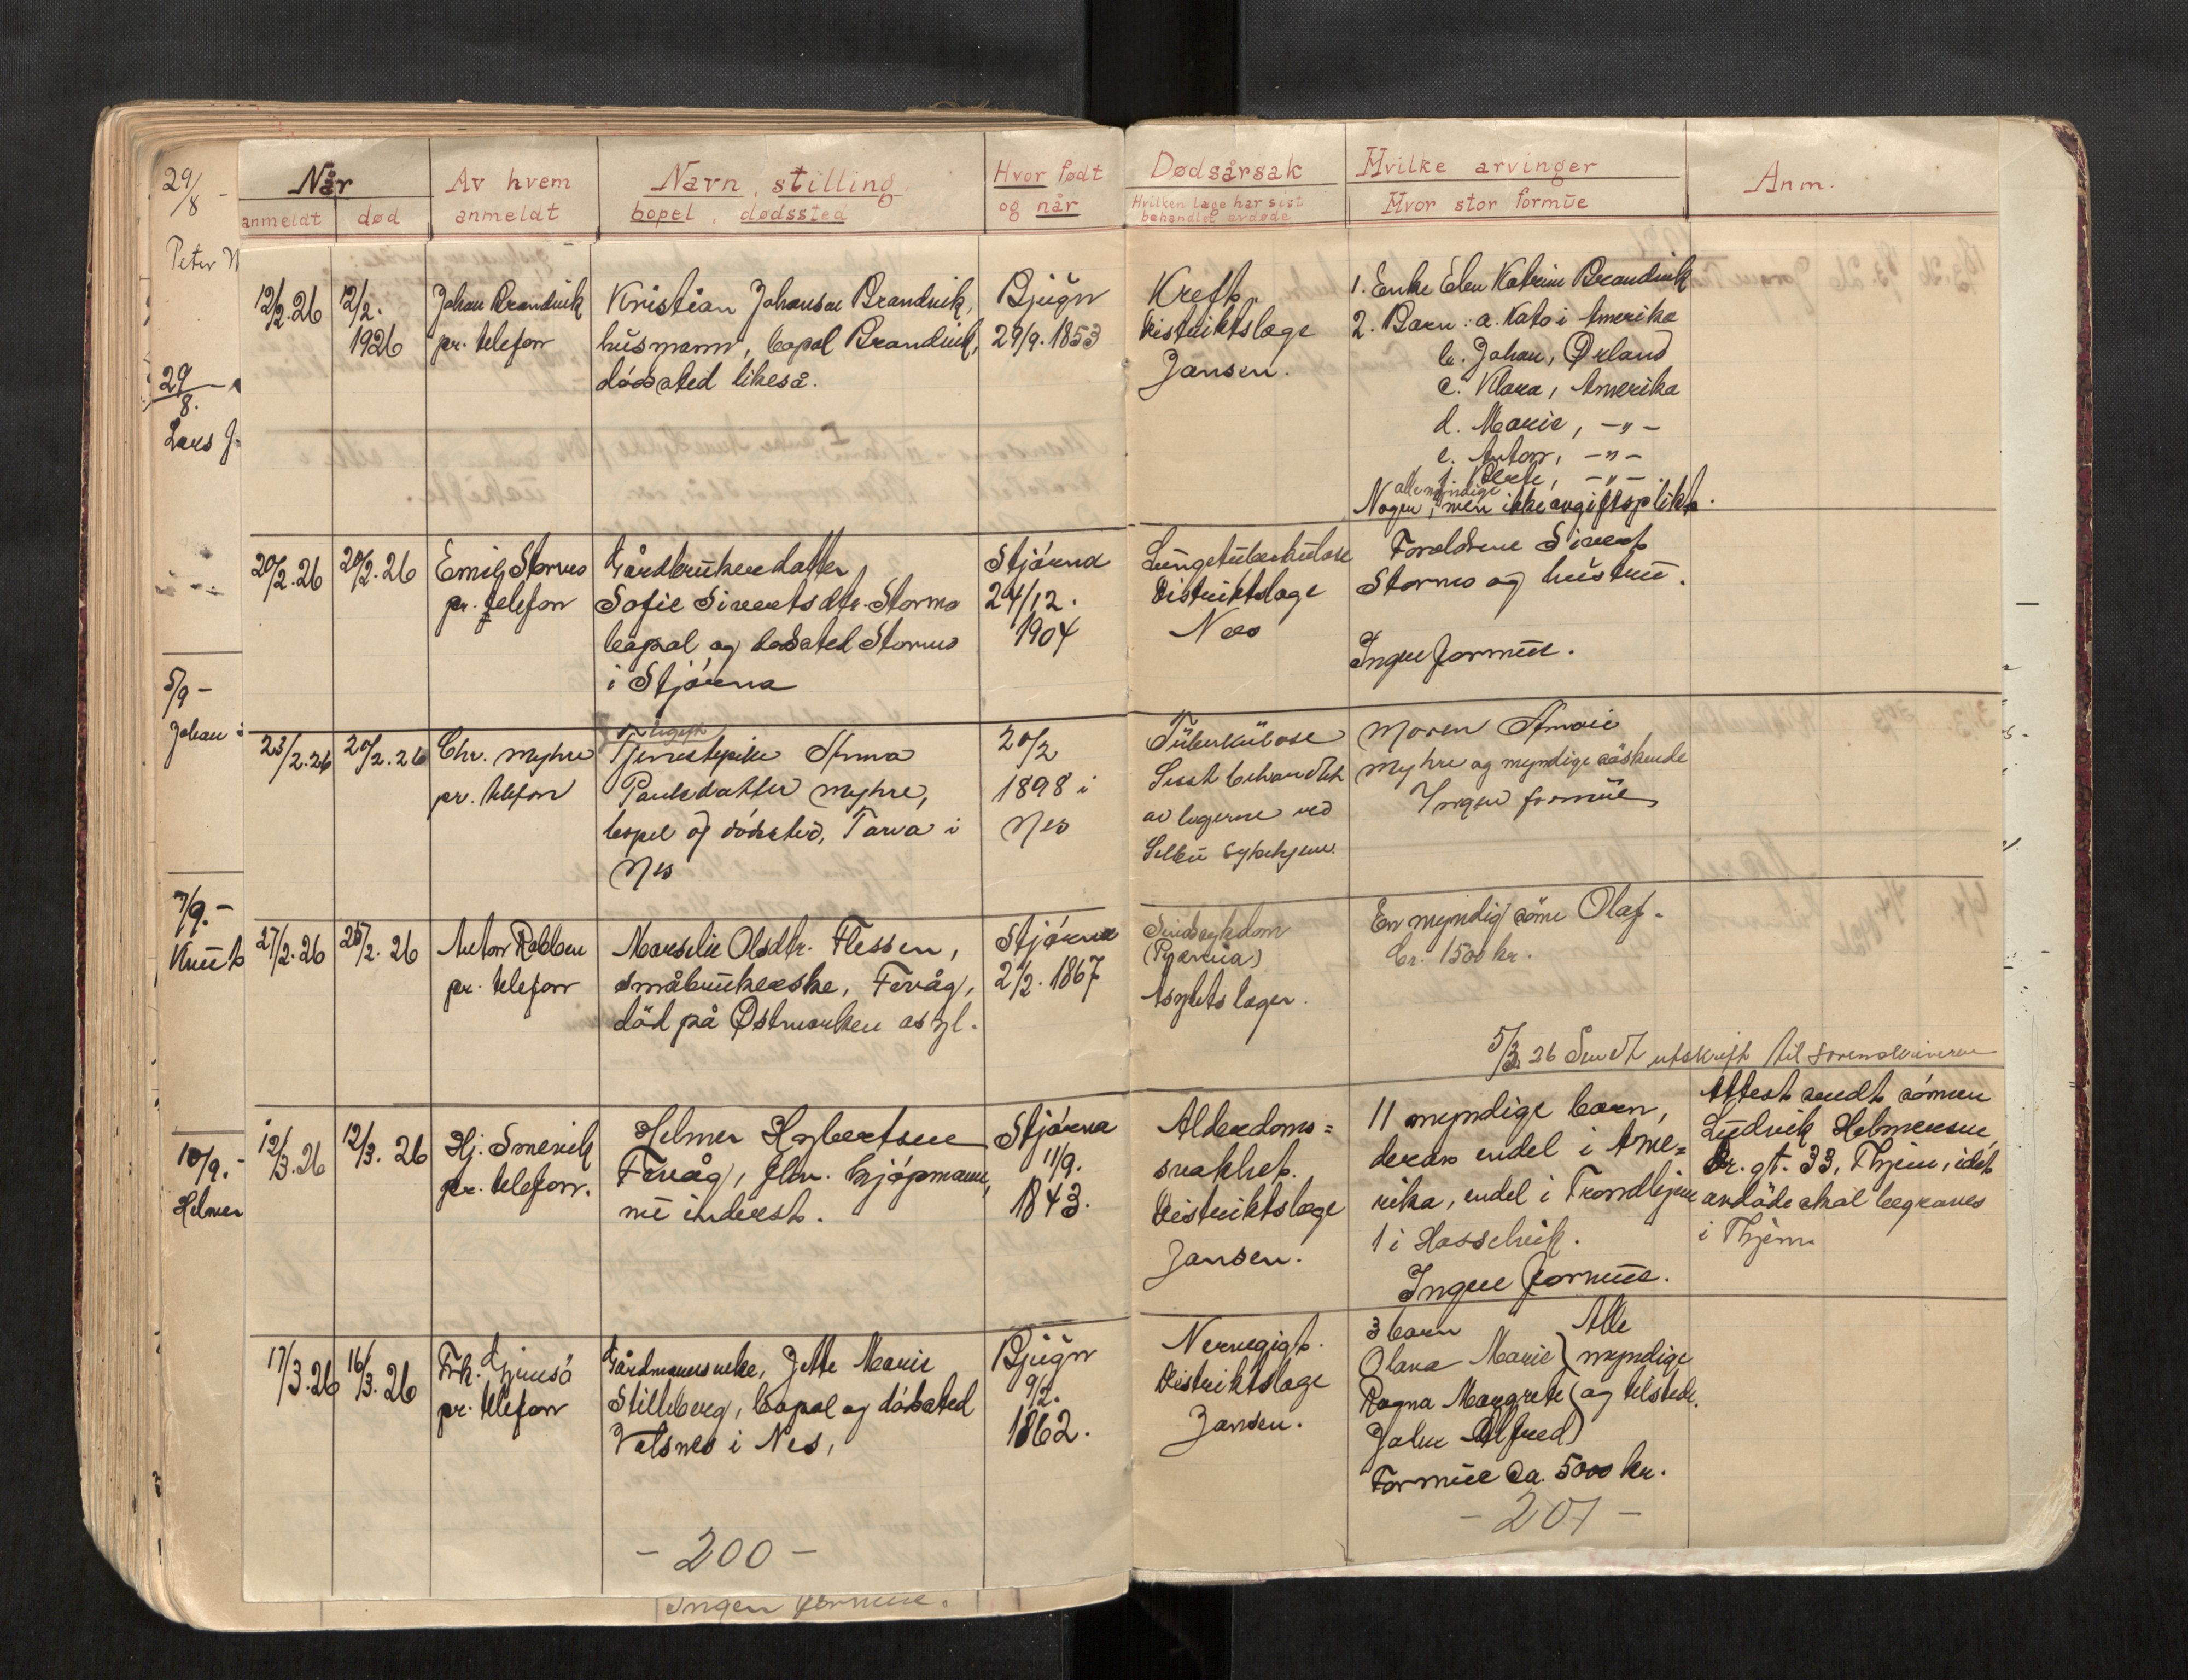 29/8 -
Peter
29/8. -
Lars J.
5/9 -
Johan
7/9. -
Knut
10/9. -
Helmer
Når
anmeldt død
Av hvem
anmeldt
Navn, stilling
bopel, dødssted
Hvor født
og når
12/2.26
12/2.
1926
Johan Brandvik
pr. telefon
Kristian Johansen Brandvik,
husmann, bopel Brandvik,
dödssted likeså.
Bjugn
29/9. 1853
20/2.26
20/2.26
Emil Stormo
pr. telefon
Gårdbrukerdatter
Sofie Sivertsdtr. Stormo
bopel og dødssted Stormo
i Stjörna
Stjörna
24/12.
1904
23/2.26
20/2.26
Chr. Myhre
pr. telefon
ugift
Tjenestepike Anna
Paulsdatter Myhre,
bopel og dödssted, Tarva i
Nes
20/2
1898 i
Nes
27/2.26
25/2.26
Anton Rabben
pr. telefon
Marselie Olsdtr. Flessen,
småbrukerske, Fevåg,
död på Østmarken asyl.
Stjörna
2/2. 1867
12/3.26
12/3.26
Hj. Smevik
pr. telefon.
Helmer Hagbertsen
Fevåg, fhv. kjöpmann,
nu inderst.
Stjörna
11/9.
1843.
17/3.26
16/3.26
Frk.
pr. telefon
Gårdmannsenke, Jette Marie
Stilleberg, bopel og dödssted
Valsnes i Nes,
Bjugn
9/2.
1862.
- 200 -
Ingen formue.
Dødsårsak
Hvilken læge har sist
behandlet avdøde
Hvilke arvinger
Hvor stor formue
Anm.
Kreft.
Distriktslæge
Jansen.
1. Enke Elen Katrine Brandvik
2. Barn: a. Kato i Amerika
b. Johan, Ørland
c. Klara, Amerika
d. Marie, -"-
e. Anton, -"-
f. -"-
alle myndige
Nogen, men ikke avgiftsplikt.
Lungetuberkulose
Distriktslæge
Næs
Foreldrene Sivert
Stormo og hustru.
Ingen formue.
Tuberkulose
Sisst behandlet
av lægerne ved
Selbu sykehjem.
Moren
Myhre og myndige söskende
Ingen formue
Sindssykdom
Asylets læger.
En myndig sönn Olaf.
Ca. 1500 kr.
5/3. 26 Sendt utskrift til sorenskriveren
Alderdoms=
svakhet.
Distriktslæge
Jansen.
11 myndige barn,
derav endel i Ame=
rika, endel i Trondhjem
1 i Hasselvik.
Ingen formue.
Attest sendt sönnen
Ludvik Helmersen,
Dr. gt. 33, Thjem, idet
avdöde skal begraves
i Thjem.
Nervegigt.
Distriktslæge
Jansen.
3 barn
Olava Marie
Ragna Margrete
John Alfred
Alle
myndige
og tilstede.
Formue ca. 5000 kr.
- 201 -